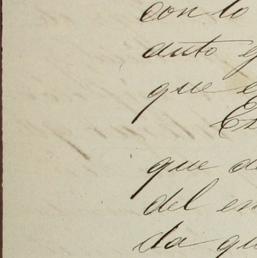 con lo
auto y
que e
Es
que de
del en
da qu